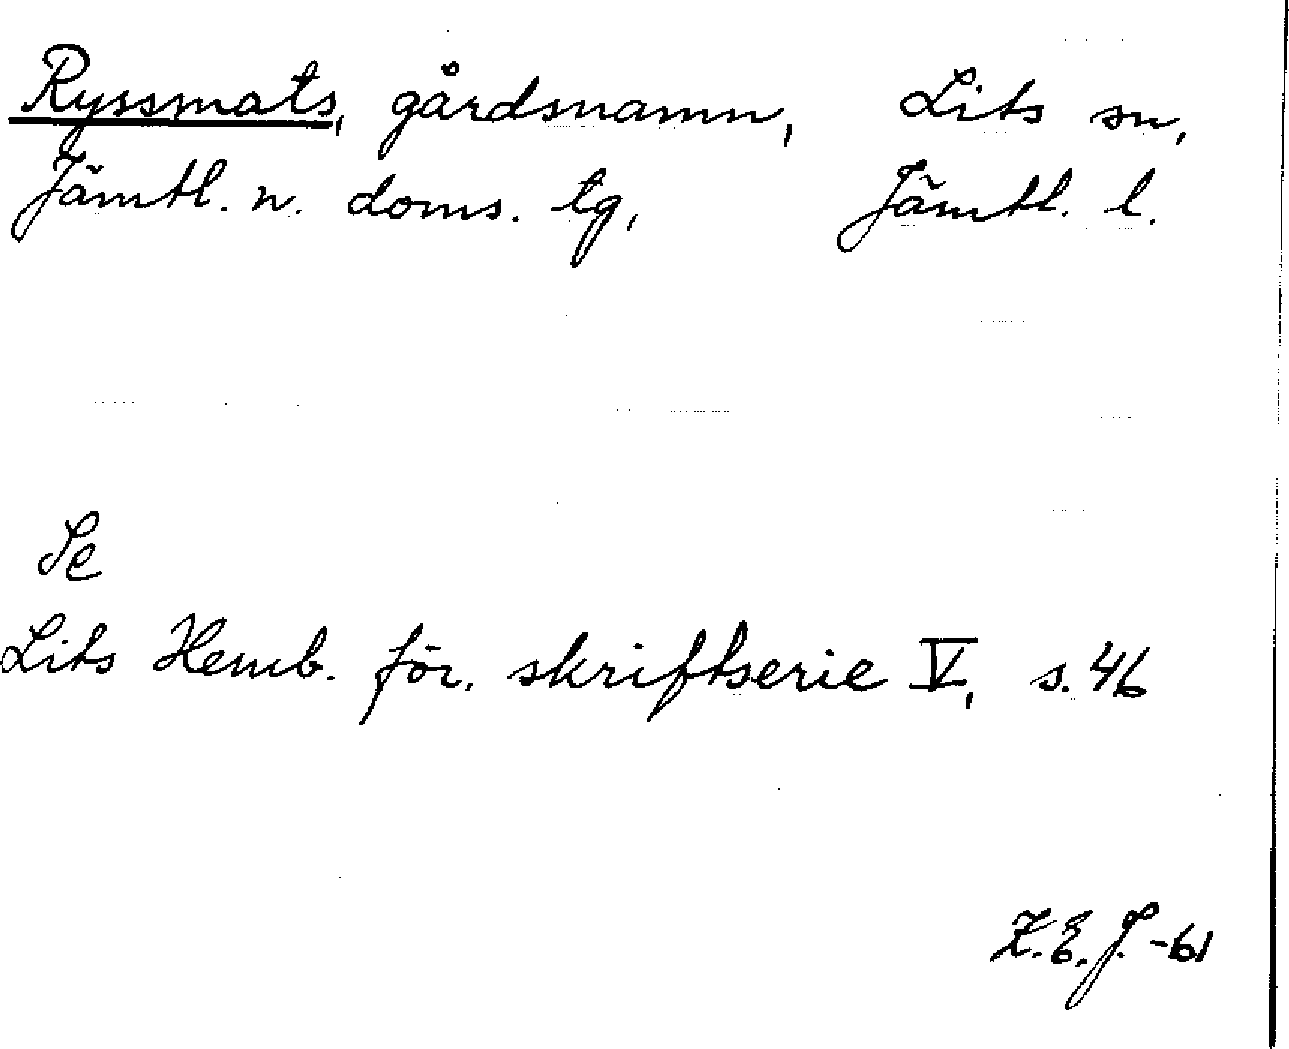 Ryssmats, gårdsnamn, Lits sn,
Jämtl. n. doms. tg, Jämtl. l.
Se
Lits Hemb. för. skriftserie V, s. 46
K.E.J. -61